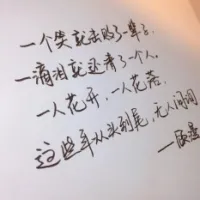 一个笑就击败了一辈子,
一滴泪就还清了一个人。
一人花开,一人花落,
这些年从头到尾,无人问询